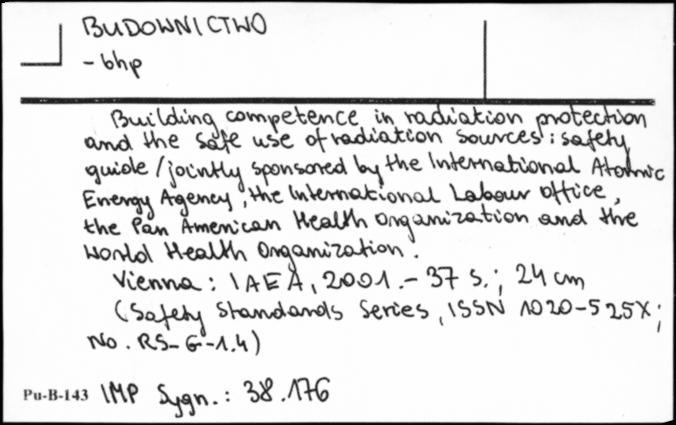 BUDOWNICTWO
- bhp
Building competence in radiation protection
and the safe use of radiation sources : safety
guide / jointly sponsored by the International Atomic
Energy Agency, the International Labour Office,
the Pan American Health Organization and the
World Health Organization.
Vienna : IAEA, 2001. - 37 s. ; 24 cm
(Safety Standards Series, ISSN 1020-525X ;
No. RS-G-1.4)
Pu-B-143 IMP Sygn. : 38.176